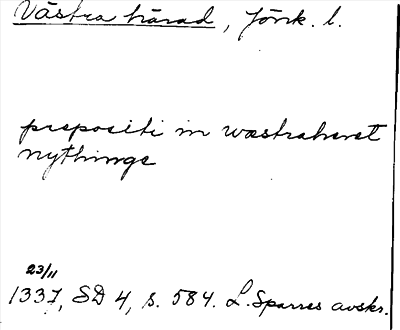 Västra härad, Jönk. l.
prepositi in wæstrahæret
nythinge
23/11
1337, SD 4, s. 584. L. Sparres avskr.